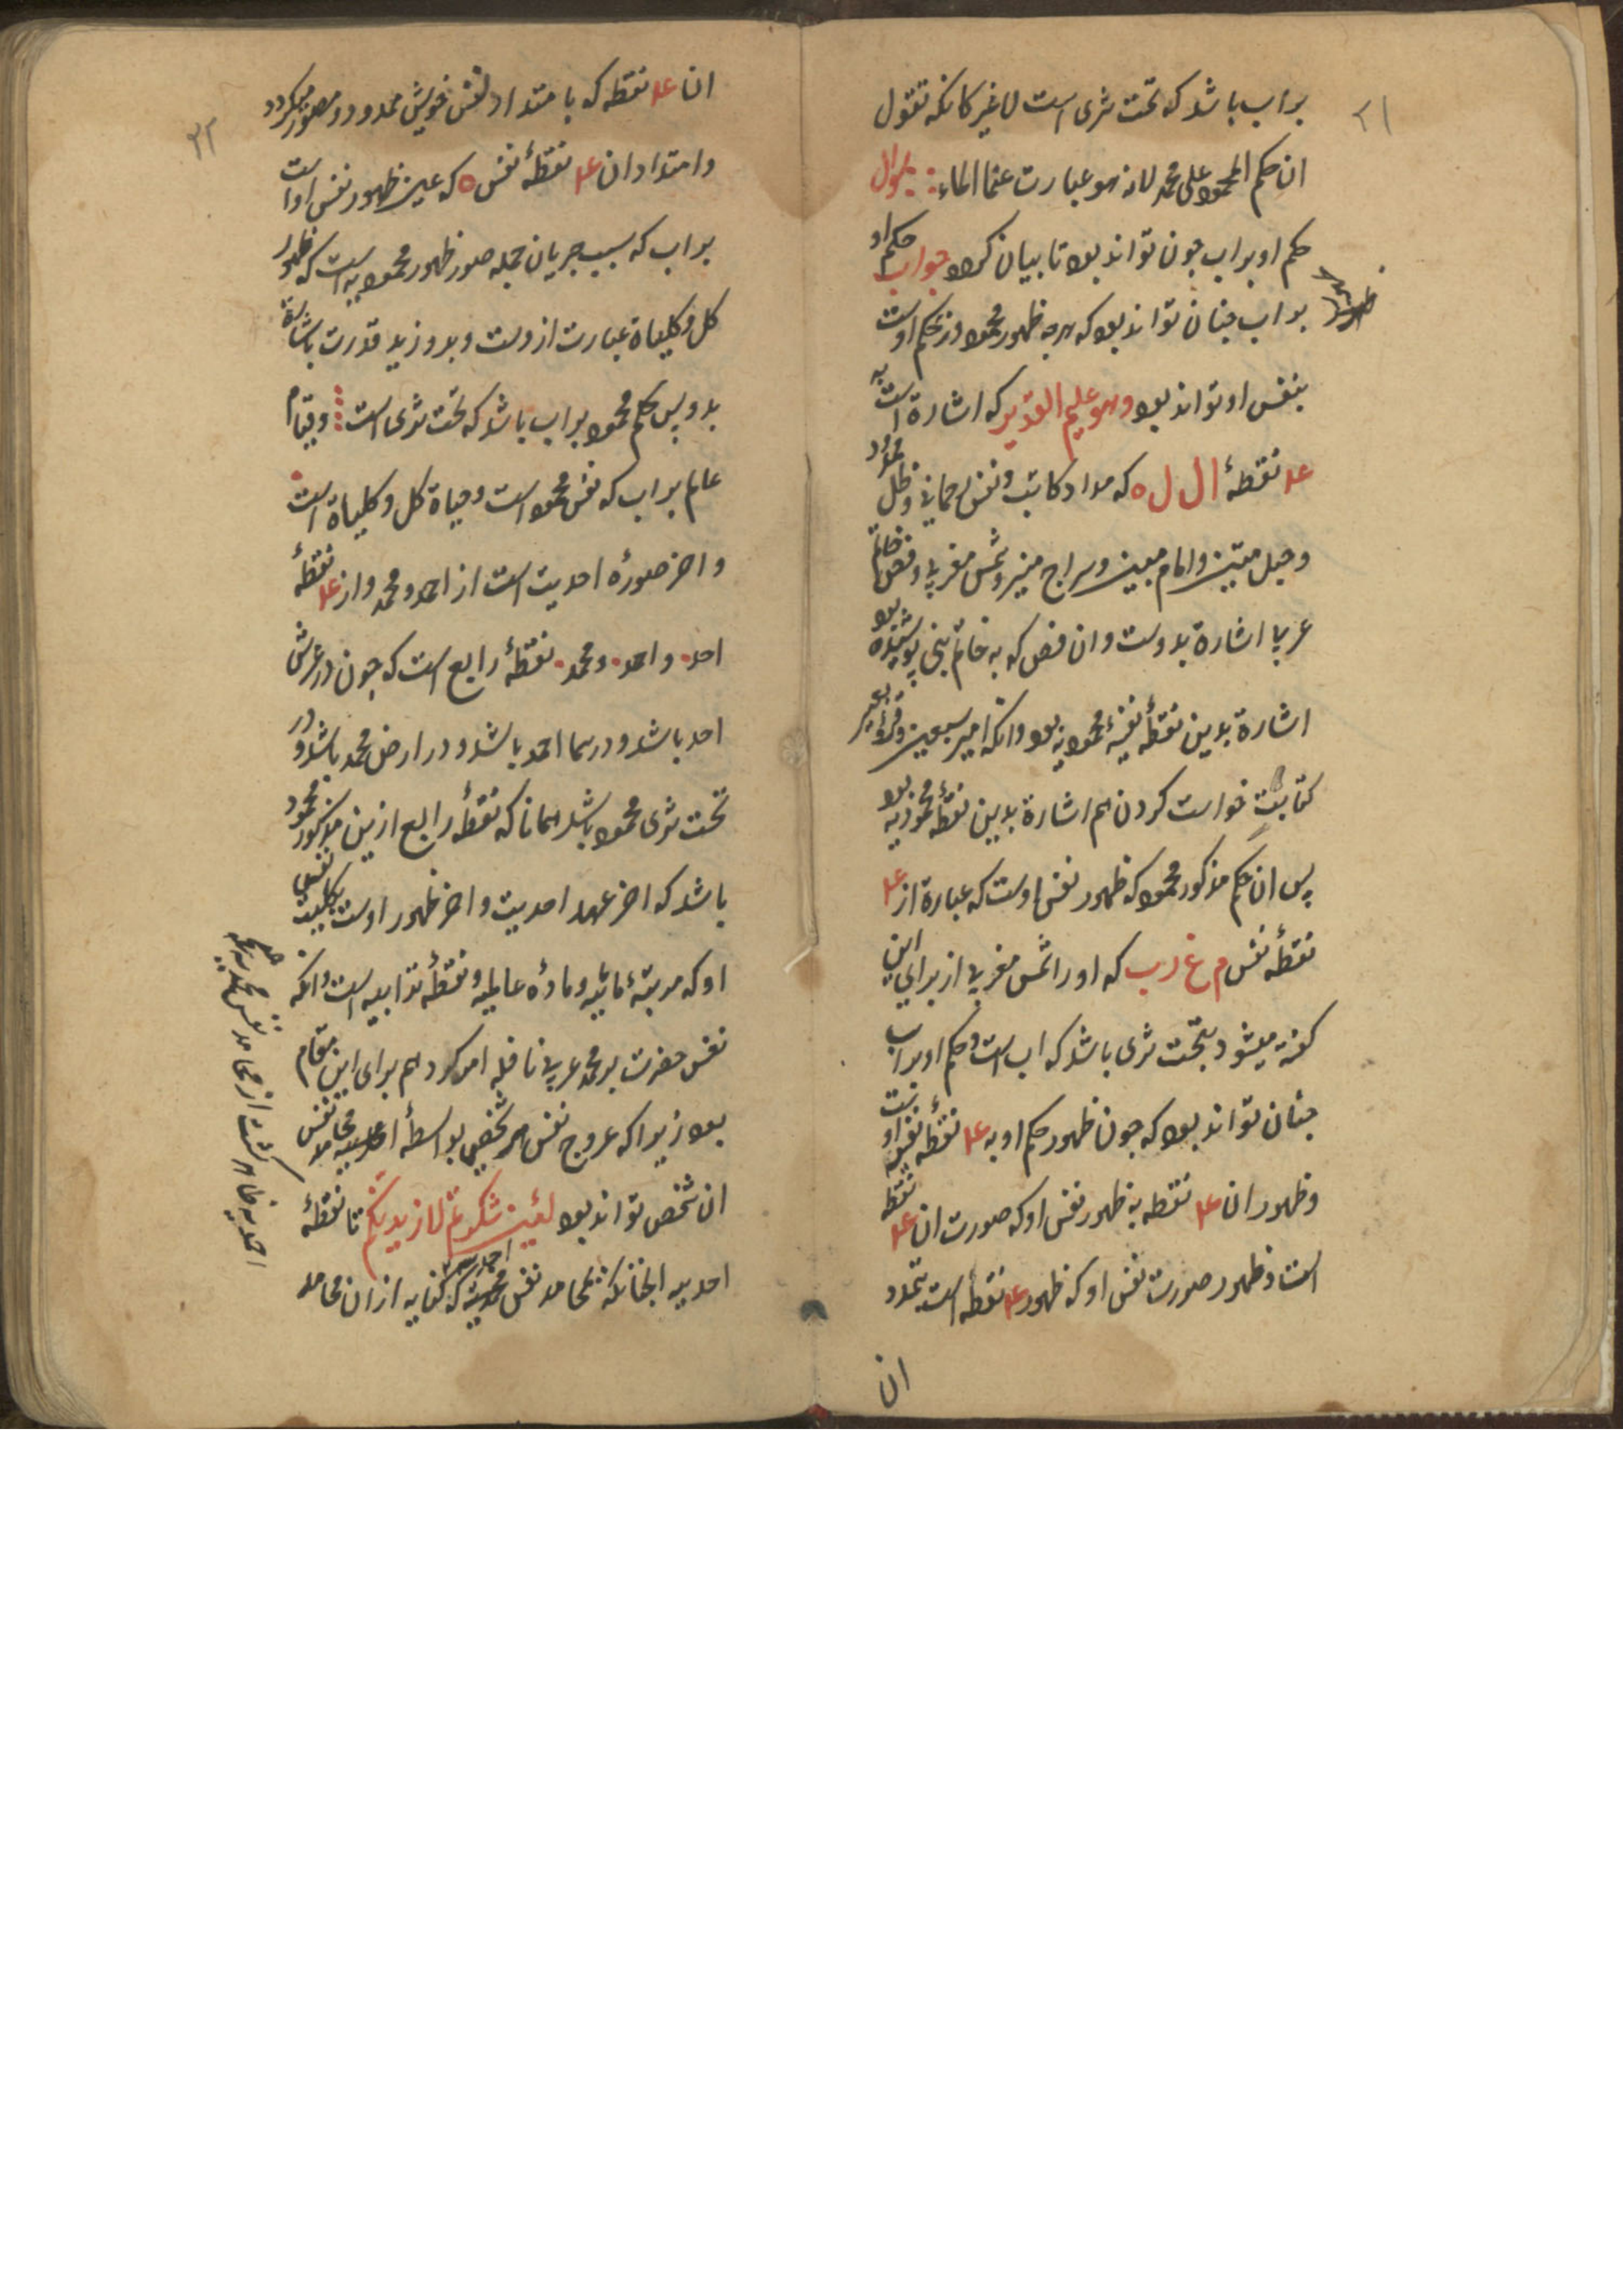 ۲۱
براب باشد که تحت ثری است لا غیر کانکه تقول
ان حکم المحمود علی محمد لانه هو عبارت عنها الماء سوال
حکم او براب چون تواند بود تا بیان کرد جواب حکم او
براب چنان تواند بود که هرچه ظهور محمود در حکم اوست
بنفس او تواند بود وهو علیم القدیر که اشارة است به
عد نقطهٔ ا ل ل ه که مداد کاتب و نفس رحمانی و ظل ممدود
وحبل متین و امام مبین و سراج منیر و شمس مغربی و فص خاتم
عربا اشارة بدوست و ان فص که به خاتم نبی پوشیده بود
اشارة بدین نقطه نفسیهٔ محمودیه بود وانکه امیر سبعین
کتابت خواست کردن هم اشارة بدین نقطه محمودیه بود
پس ان حکم مذکور محمود که ظهور نفس اوست که عبارة از عد
نقطه نفس م غ ر ب که او را شمس مغربی از برای این
کفته میشود بتحت ثری باشد که اب است و حکم او براب
چنان تواند بود که چون ظهور حکم او به عد نقطه نفس او
وظهور ان عد نقطه به ظهور نفس او که صورت ان عد نقطه
است و ظهور صورت نفس او که ظهور عد نقطه است
ان
۲۲
ان عد نقطه که بامتداد نفس خویش ممدود و مصور میکردد
وامتداد ان عد نقطهٔ نفس ه که عین ظهور نفس او است
براب که سبب جریان جمله صور ظهور محمودیه است که ظهور
کل و کلیاة عبارت ازوست و بدو زید قدرت باشارة
بدو پس حکم محمود براب باشد که تحت ثری است وقیام
عالم براب که نفس محمود است و حیاة کل و کلیاة است
واخر صورهٔ احدیت است از احمد و محمد و از عد نقطهٔ
احد و احمد و محمد نقطهٔ رابع است که چون در عرش
احد باشد و در سما احمد باشد و در ارض محمد باشد و در
تحت ثری محمود باشد همانا که نقطه رابع ازین مذکور محمود
باشد که اخر عهد احدیت و اخر ظهور اوست بکلیت نفس
او که مرتبهٔ مائیه و مادهٔ عالمیه و نقطه ترابیه است وانکه
نفس حضرت بر محمد عربی نافله امر کرد هم برای این مقام
بود زیرا که عروج نفس هر شخصی بواسطهٔ محامد نفس
ان شخص تواند بود لئین شکرتم لازیدنکم تا نقطهٔ
احدیه انجنانکه بمحامد نفس محمدیه که کنایه ازان محامد